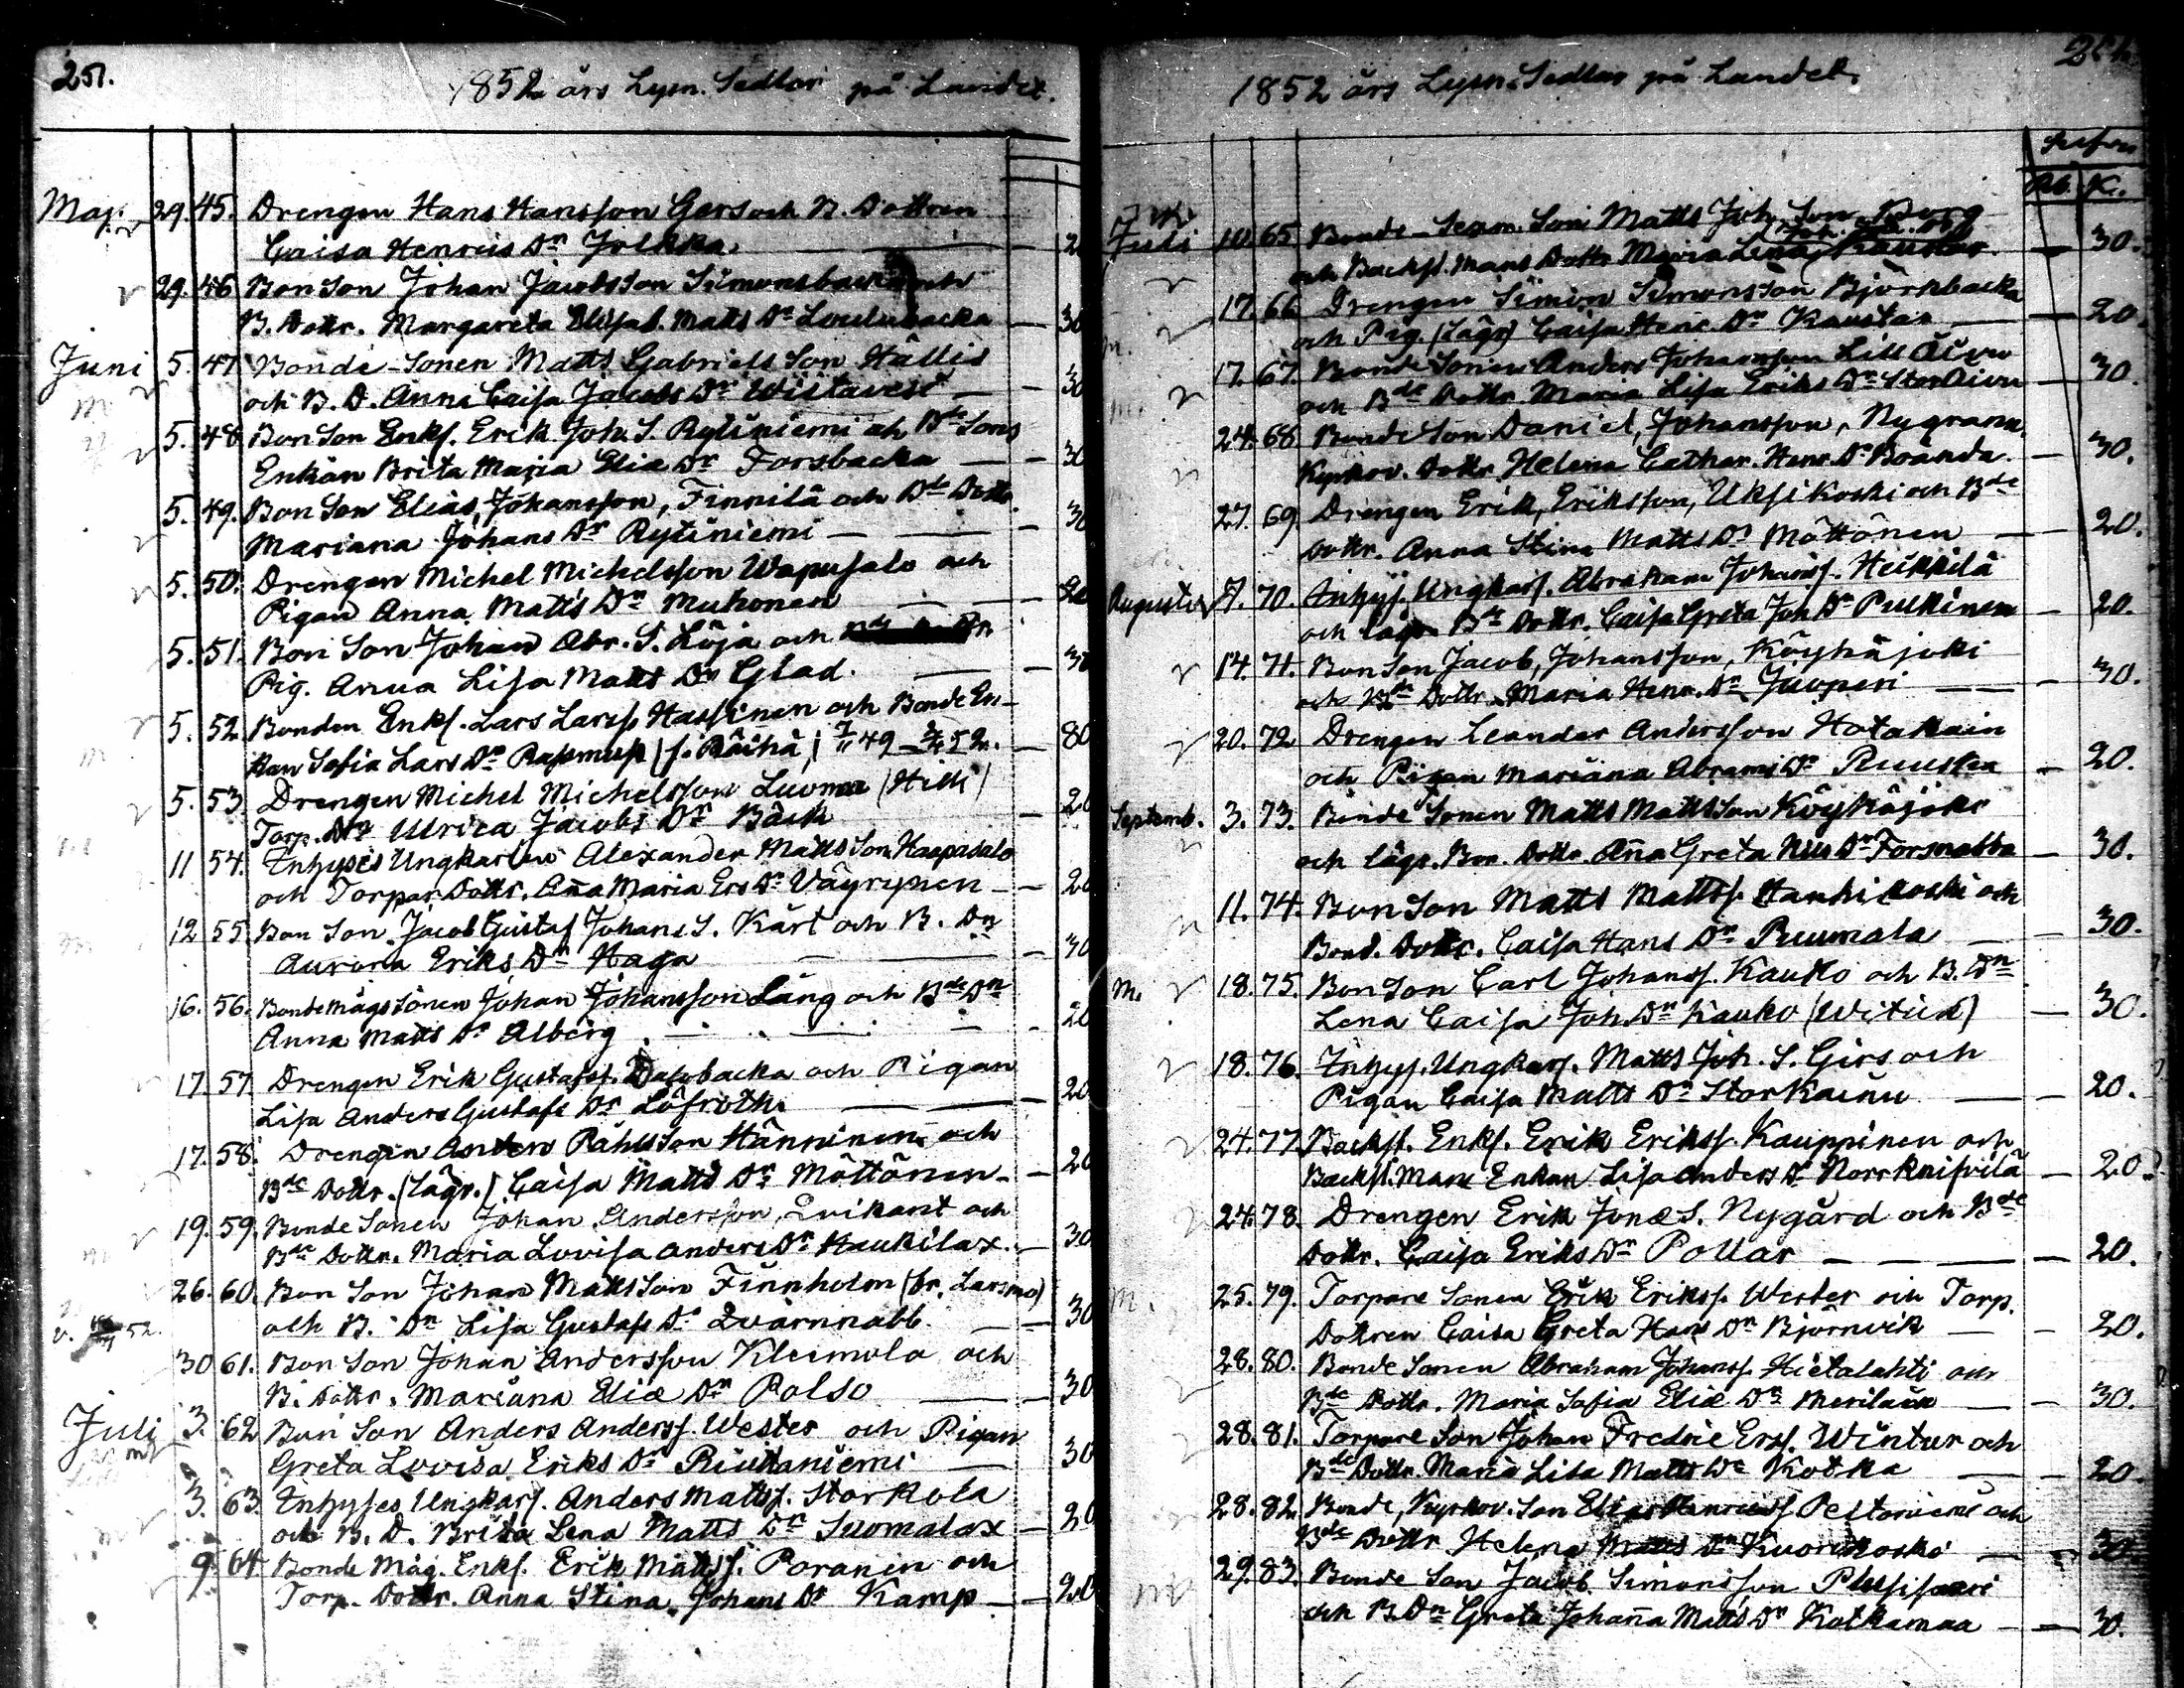 251.
1852 års Lysn. Sedlar på Landet.
Maj. 29. 45. Drengen Hans Hansson Gers och B. Dottren
Caisa Henrics Dr Jolkka — 20
29. 46 Bon Son Johan Jacobsson Simonsbacka och
B. Dottr. Margareta Elisab. Matts Dr — 30
Juni 5. 47 Bonde-Sonen Matts Gabriels Son Hällis
och B. D. Anna Caisa Jacobs Dr Wistavest — 30
5. 48 Bon Son Enkl. Erik Joh. S. Rytiniemi och Bde Sons
Enkan Brita Maja Eliæ Dr Forsbacka — 30
5. 49. Bon Son Elias, Johansson, Finnilä och Bde Dottr.
Mariana Johans Dr Rytiniemi — 30
5. 50. Drengen Michel Michelsson Wapusalo och
Pigan Anna Matts Dr Mukonen — 20
5. 51. Bon Son Johan Abr. S. Löja och
Pig. Anna Lisa Matts Dr Glad. — 30
5. 52 Bonden Enkl. Lars Larss. Hassinen och Bonde En-
kan Sofia Lars Dr Rasmus (f. Räihä) — 80
5. 53 Drengen Michel Michelsson Luoma (Hilli)
Torp. Dr Ulrica Jacobs Dr Bäck — 20
11 54. Inhyses Ungkarlen Alexander Matts Son Haapasalo
och Torpar Dottr. Aña Maria Ers Dr Väyrynen — 20
12 55 Bon Son Jacob Gustaf Johans S. Kärt och B. Dr
Aurora Eriks Dr Haga — 30
16. 56. Bonde mågs Sonen Johan Johansson Lång och Bde Dr
Anna Matts Dr Alberg — 20
17. 57 Drengen Erik Gustafss. Dalobacka och Pigan
Lisa Anders Gustafs Dr Löfroth. — 20
17. 58. Drengen Anders Påhlsson Hänninen och
Bde Dottr. (lägr.) Caisa Matts Dr Möttönen — 20
19. 59. Bonde Sonen Johan Andersson, Qvikant och
Bde Dottr. Maria Lovisa Anders Dr Haukilax. — 30
26. 60. Bon Son Johan Matts Son Finnholm (fr. Larsmo)
och B. Dr Lisa Gustafs Dr Qvarnnabb. — 30
30 61. Bon Son Johan Andersson Kleimola och
B. Dottr. Mariana Eliæ Dr Polso — 30
Juli 3. 62 Bon Son Anders Anderss. Wester och Pigan
Greta Lovisa Eriks Dr — 30
3. 63. Inhyses Ungkarl. Anders Mattss. Storkola
och B. D. Brita Lena Matts Dr Suomalax — 20
9. 64 Bonde Måg. Enkl. Erik Mattss. Poranen och
Torp. Dottr. Anna Stina Johans Dr Kamp — 20
1852 års Lysn. Sedlar på Landet.
Rb. K.
Juli 10 65 Bonde-Sexm. Son Matts Joh. Son Borg
och Backst. Mans Dottr Maria Lena — 30.
17. 66 Drengen Simon Simonsson Björkbacka
och Pig. (lägr) Caisa Henr. Dr Kaustar — 20.
17. 67. Bonde Sonen Anders Johansson Lill
och Bde Dottr Maria Lisa Eriks Dr — 30.
24. 68. Bonde Son Daniel, Johansson, Nygrann
Kyrkov. Dottr. Helena Cathar. Henr. Dr — 30.
27. 69 Drengen Erik, Eriksson, Uksikoski och Bde
Dottr. Anna Stina Matts Dr Möttönen — 20.
Augusti 7. 70. Inhys. Ungkarl. Abraham Johanss. Heikkilä
och lägr. Bde Dottr. Caisa Greta Joh. Dr Pulkinen — 20.
14. 71. Bon Son Jacob, Johansson, Köyhäjoki
och Bde Dottr. Maria Henr. Dr Juoperi — 30.
20. 72 Drengen Leander Andersson Hotakain
och Pigan Mariana Abrams Dr Ruuska — 20.
Septemb. 3. 73. Bonde Sonen Matts Mattsson Köyhäjoki
och lägr. Bon. Dottr Aña Greta Nils Dr Forsnabba — 30.
11. 74. Bon Son Matts Mattss. Hanhikoski och
Bond. Dottr. Caisa Hans Dr Puumala — 30.
m. 18. 75. Bon Son Carl Johanss. Kauko och B. Dr
Lena Caisa Joh. Dr Kauko — 30.
18. 76. Inhys. Ungkarl. Matts Joh. S. Girs och
Pigan Caisa Matts Dr Storkainu — 20.
24. 77 Backst. Enkl. Erik Erikss. Kauppinen och
Backst. Mans Enkan Lisa Anders Dr Norrknifvilä — 20.
24. 78. Drengen Erik Jonæ S. Nygård och Bde
Dottr. Caisa Eriks Dr Pollar — 20.
m. 25. 79. Torpare Sonen Erik Erikss. Wester och Torp.
Dottren Caisa Greta Hans Dr Björnvik — 20.
28. 80. Bonde Sonen Abraham Johanss. Hietalahti och
Bde Dottr. Maria Sofia Eliæ Dr — 30.
28. 81. Torpare Son Johan Fredric Ers. Wintur och
Bde Dottr. Maria Lisa Matts Dr Kotka — 20.
28. 82. Bonde, Kyrkov. Son Elias Henricss. Peltoniemi och
Bde Dottr Helena Matts Dr Kuorikoski — 30
29. 83. Bonde Son Jacob Simonsson Plusisaari
och B. Dr Greta Johaña Matts Dr Kotkamaa — 30.